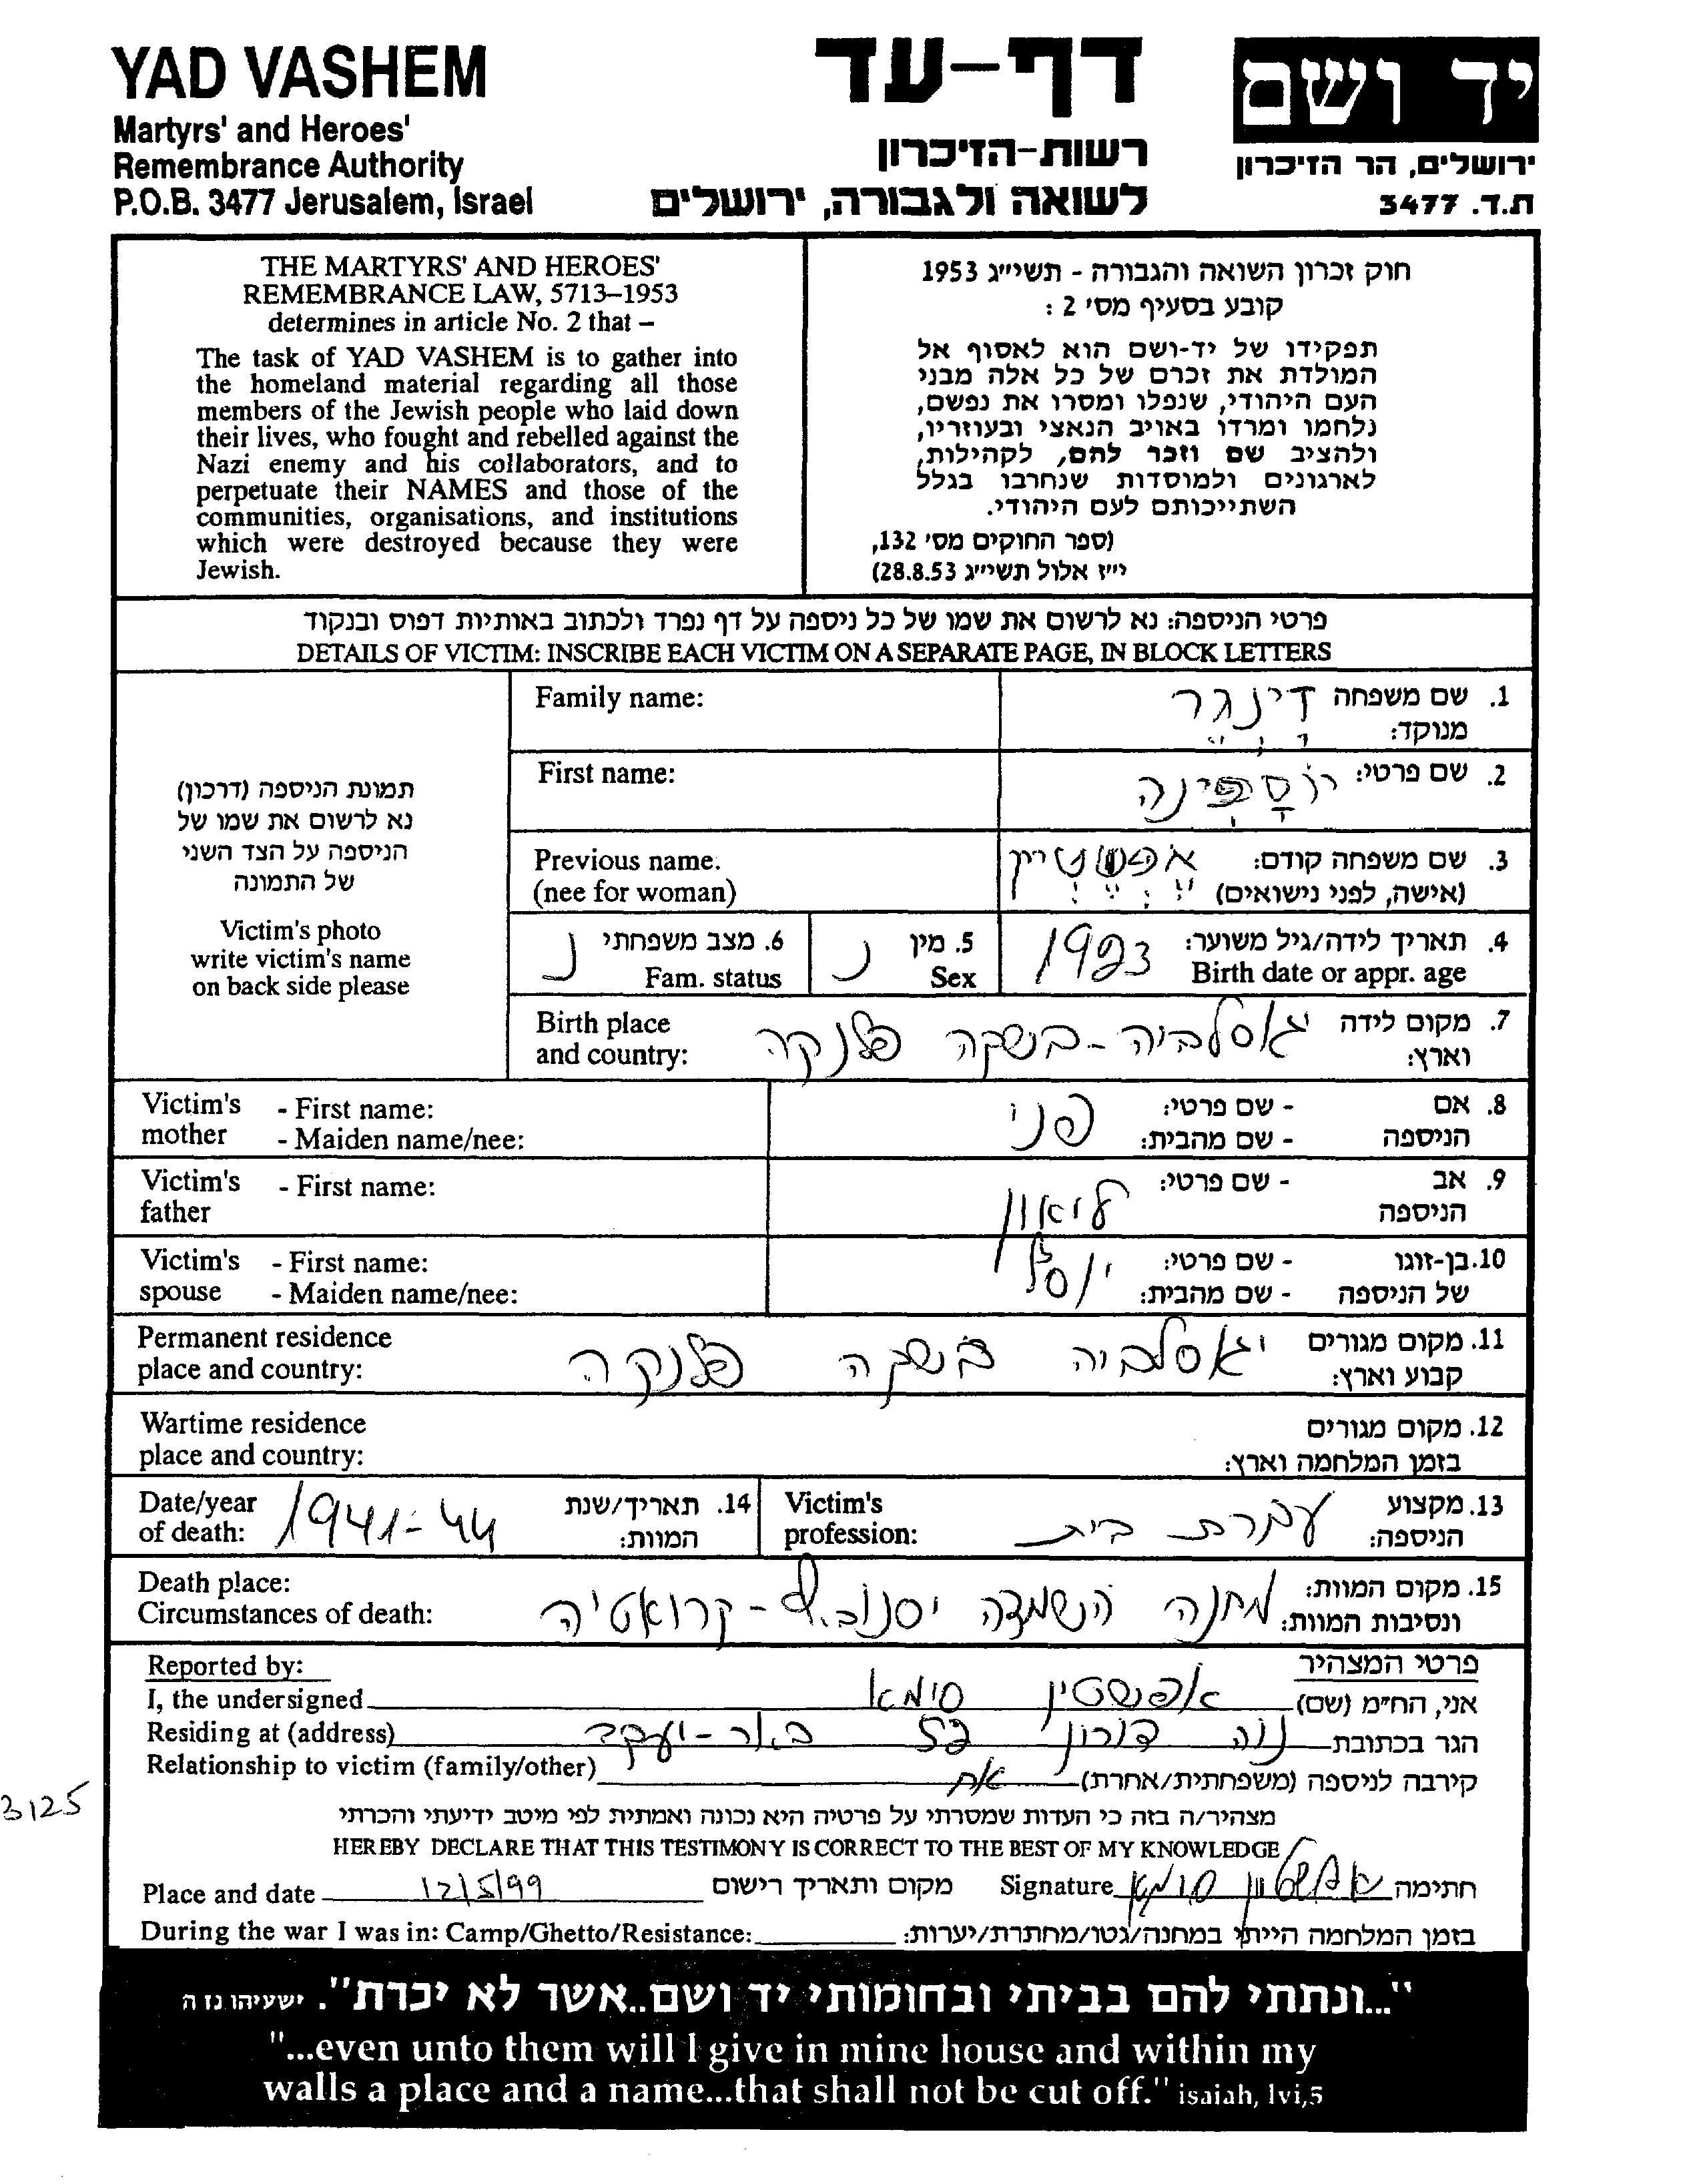 YAD VASHEM
Martyrs' and Heroes'
Remembrance Authority
P.O.B. 3477 Jerusalem, Israel
דף-עד
רשות-הזיכרון
לשואה ולגבורה, ירושלים
יד ושם
ירושלים, הר הזיכרון
ת.ד. 3477
THE MARTYRS' AND HEROES'
REMEMBRANCE LAW, 5713–1953
determines in article No. 2 that –
The task of YAD VASHEM is to gather into
the homeland material regarding all those
members of the Jewish people who laid down
their lives, who fought and rebelled against the
Nazi enemy and his collaborators, and to
perpetuate their NAMES and those of the
communities, organisations, and institutions
which were destroyed because they were
Jewish.
חוק זכרון השואה והגבורה - תשי״ג 1953
קובע בסעיף מס' 2 :
תפקידו של יד-ושם הוא לאסוף אל
המולדת את זכרם של כל אלה מבני
העם היהודי, שנפלו ומסרו את נפשם,
נלחמו ומרדו באויב הנאצי ובעוזריו,
ולהציב שם וזכר להם, לקהילות,
לארגונים ולמוסדות שנחרבו בגלל
השתייכותם לעם היהודי.
(ספר החוקים מס' 132,
י״ז אלול תשי״ג 28.8.53)
פרטי הניספה: נא לרשום את שמו של כל ניספה על דף נפרד ולכתוב באותיות דפוס ובנקוד
DETAILS OF VICTIM: INSCRIBE EACH VICTIM ON A SEPARATE PAGE, IN BLOCK LETTERS
תמונת הניספה (דרכון)
נא לרשום את שמו של
הניספה על הצד השני
של התמונה
Victim's photo
write victim's name
on back side please
1. שם משפחה דינגר Family name:
מנוקד:
2. שם פרטי: יוספינה First name:
3. שם משפחה קודם: אפשטיין Previous name.
(אישה, לפני נישואים) (nee for woman)
4. תאריך לידה/גיל משוער: 1923 5. מין נ 6. מצב משפחתי נ
Birth date or appr. age Sex Fam. status
7. מקום לידה יגוסלביה - בשקה פלנקה Birth place
וארץ: and country:
8. אם - שם פרטי: פני Victim's - First name:
הניספה - שם מהבית: mother - Maiden name/nee:
9. אב - שם פרטי: ליאון Victim's - First name:
הניספה father
10. בן-זוגו - שם פרטי: Victim's - First name:
של הניספה - שם מהבית: spouse - Maiden name/nee:
11. מקום מגורים יגוסלביה בשקה פלנקה Permanent residence
קבוע וארץ: place and country:
12. מקום מגורים Wartime residence
בזמן המלחמה וארץ: place and country:
13. מקצוע עקרת בית Victim's 14. תאריך/שנת 1941-44 Date/year
הניספה: profession: המוות: of death:
15. מקום המוות: מחנה השמדה יסנובץ - קרואטיה Death place:
ונסיבות המוות: Circumstances of death:
פרטי המצהיר Reported by:
אני, הח״מ (שם) אפשטיין סימא I, the undersigned
הגר בכתובת נוה דורון 52 באר-יעקב Residing at (address)
קירבה לניספה (משפחתית/אחרת) אח Relationship to victim (family/other)
3125
מצהיר/ה בזה כי העדות שמסרתי על פרטיה היא נכונה ואמתית לפי מיטב ידיעתי והכרתי
HEREBY DECLARE THAT THIS TESTIMONY IS CORRECT TO THE BEST OF MY KNOWLEDGE
Place and date 12/5/99 מקום ותאריך רישום Signature אפשטיין סימא חתימה
During the war I was in: Camp/Ghetto/Resistance: בזמן המלחמה הייתי במחנה/גטו/מחתרת/יערות:
"...ונתתי להם בביתי ובחומותי יד ושם..אשר לא יכרת". ישעיהו נו ה
"...even unto them will I give in mine house and within my
walls a place and a name...that shall not be cut off." isaiah, lvi,5